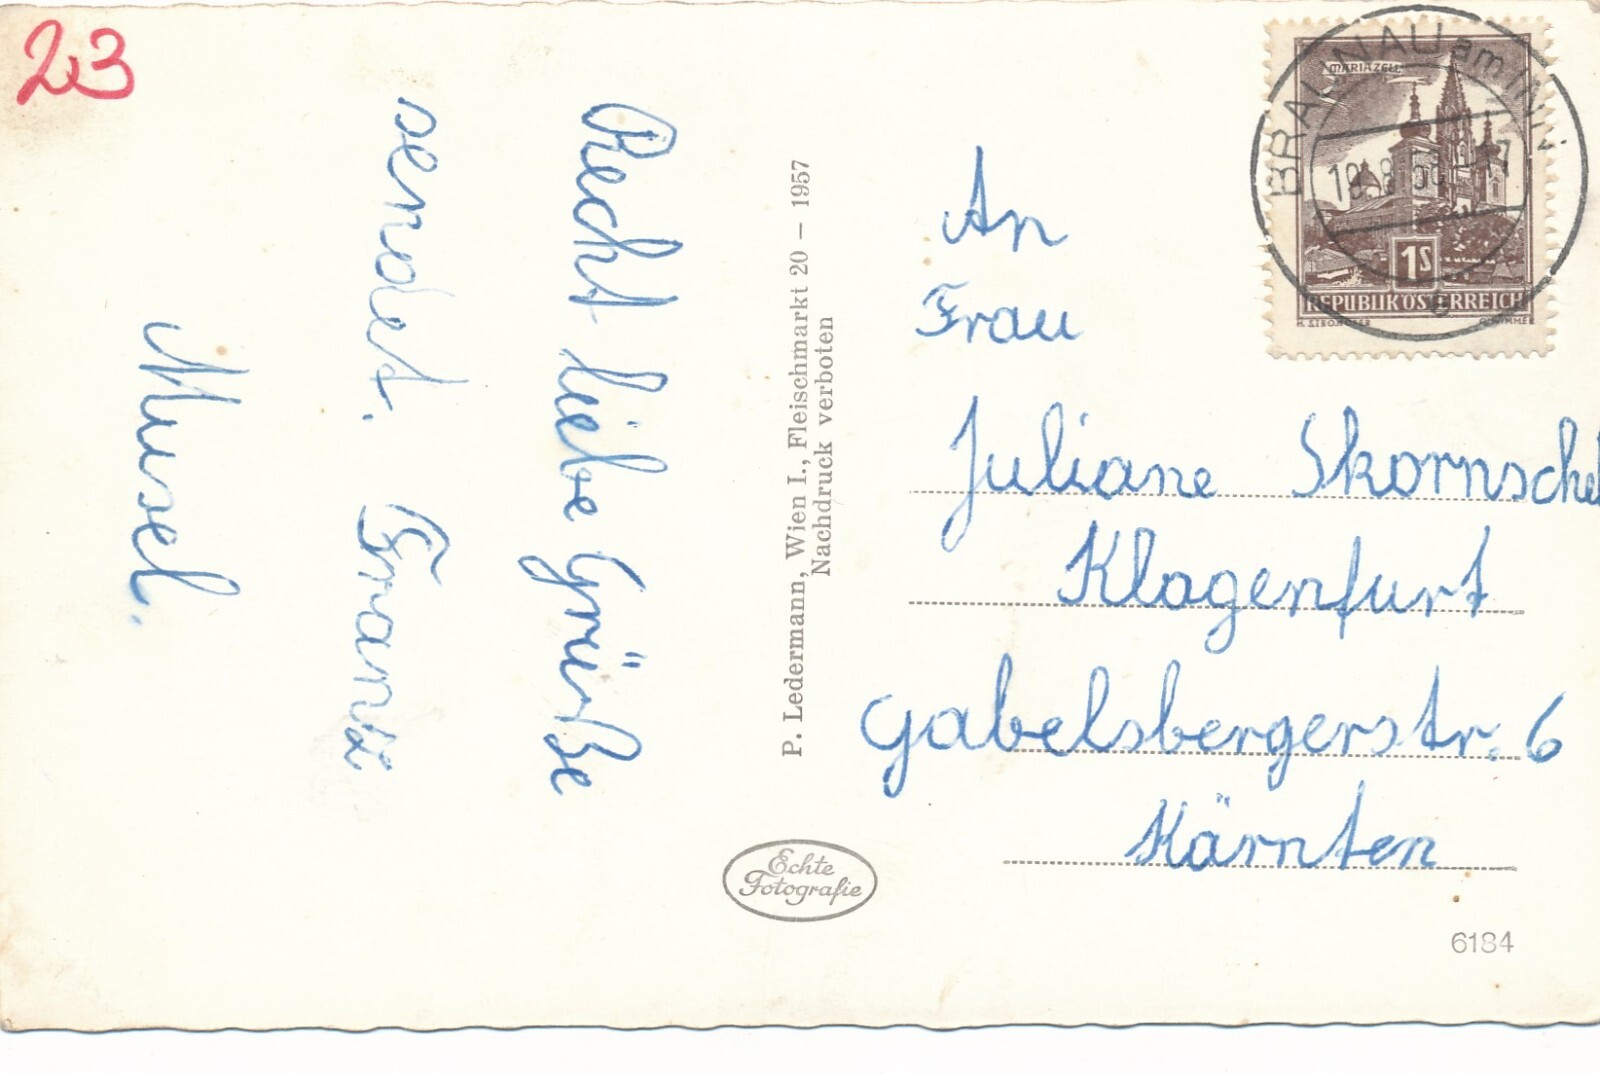 23
Recht liebe Grüße
sendet. Franz
Musel.
P. Ledermann, Wien I., Fleischmarkt 20 – 1957
Nachdruck verboten
Echte
Fotografie
BRAUNAU am INN
MARIAZELL
1S
REPUBLIK ÖSTERREICH
An
Frau
Juliane Skornschek
Klagenfurt
Gabelsbergerstr. 6
Kärnten
6184